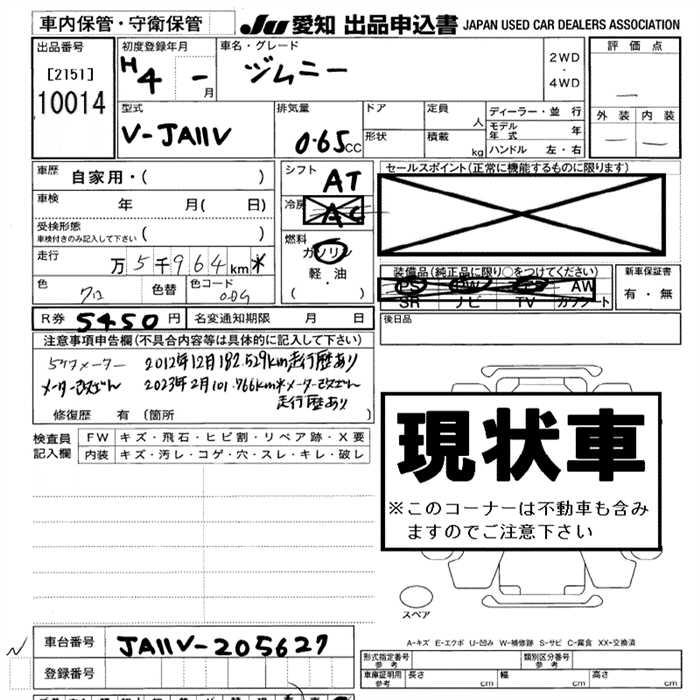 車内保管・守衛保管
JU 愛知 出品申込書 JAPAN USED CAR DEALERS ASSOCIATION
出品番号
[2151]
10014
初度登録年月
H4 - 月
車名・グレード
ジムニー
2WD
・
4WD
評価点
—
外装 内装
— —
型式
V-JA11V
排気量
0.65cc
ドア
定員 人
形状
積載 kg
ディーラー・並行
モデル年式 年
ハンドル 左・右
車歴 自家用・( )
車検 年 月( 日)
受検形態
車検付きのみ記入して下さい ( )
走行 万5千964km*
色
クロ
色替
色コード
シフト
AT
冷房
AC
燃料
ガソリン
軽・油
( ・ )
セールスポイント(正常に機能するものに限ります)
装備品(純正品に限り○をつけてください)
PS PW AW
SR ナビ TV カワシート
新車保証書
有・無
R券 5450円 名変通知期限 月 日
後日品
注意事項申告欄(不具合内容等は具体的に記入して下さい)
5ケタメーター 2012年12月182.529km走行歴あり
メーター改ざん 2023年2月101.766km*メーター改ざん
走行歴あり
修復歴 有(箇所 )
検査員記入欄
FW キズ・飛石・ヒビ割・リペア跡・X要
内装 キズ・汚レ・コゲ・穴・スレ・キレ・破レ
現状車
※このコーナーは不動車も含み
ますのでご注意下さい
スペア
A-キズ E-エクボ U-凹み W-補修跡 S-サビ C-腐食 XX-交換済
車台番号 JA11V-205627
登録番号
形式指定番号
参考
類別区分番号
参考
車庫証明用
参考
長さ cm 幅 cm 高さ cm